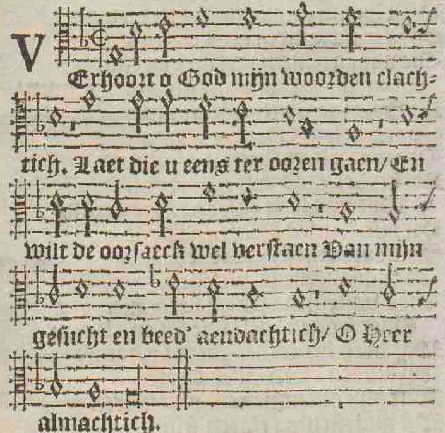 VErhoort o God mijn woorden clach-
tich. Laet die u eens ter ooren gaen/ En
wilt de oorsaeck wel verstaen Van mijn
gesucht en beed' aendachtich/ O Heer
almachtich.